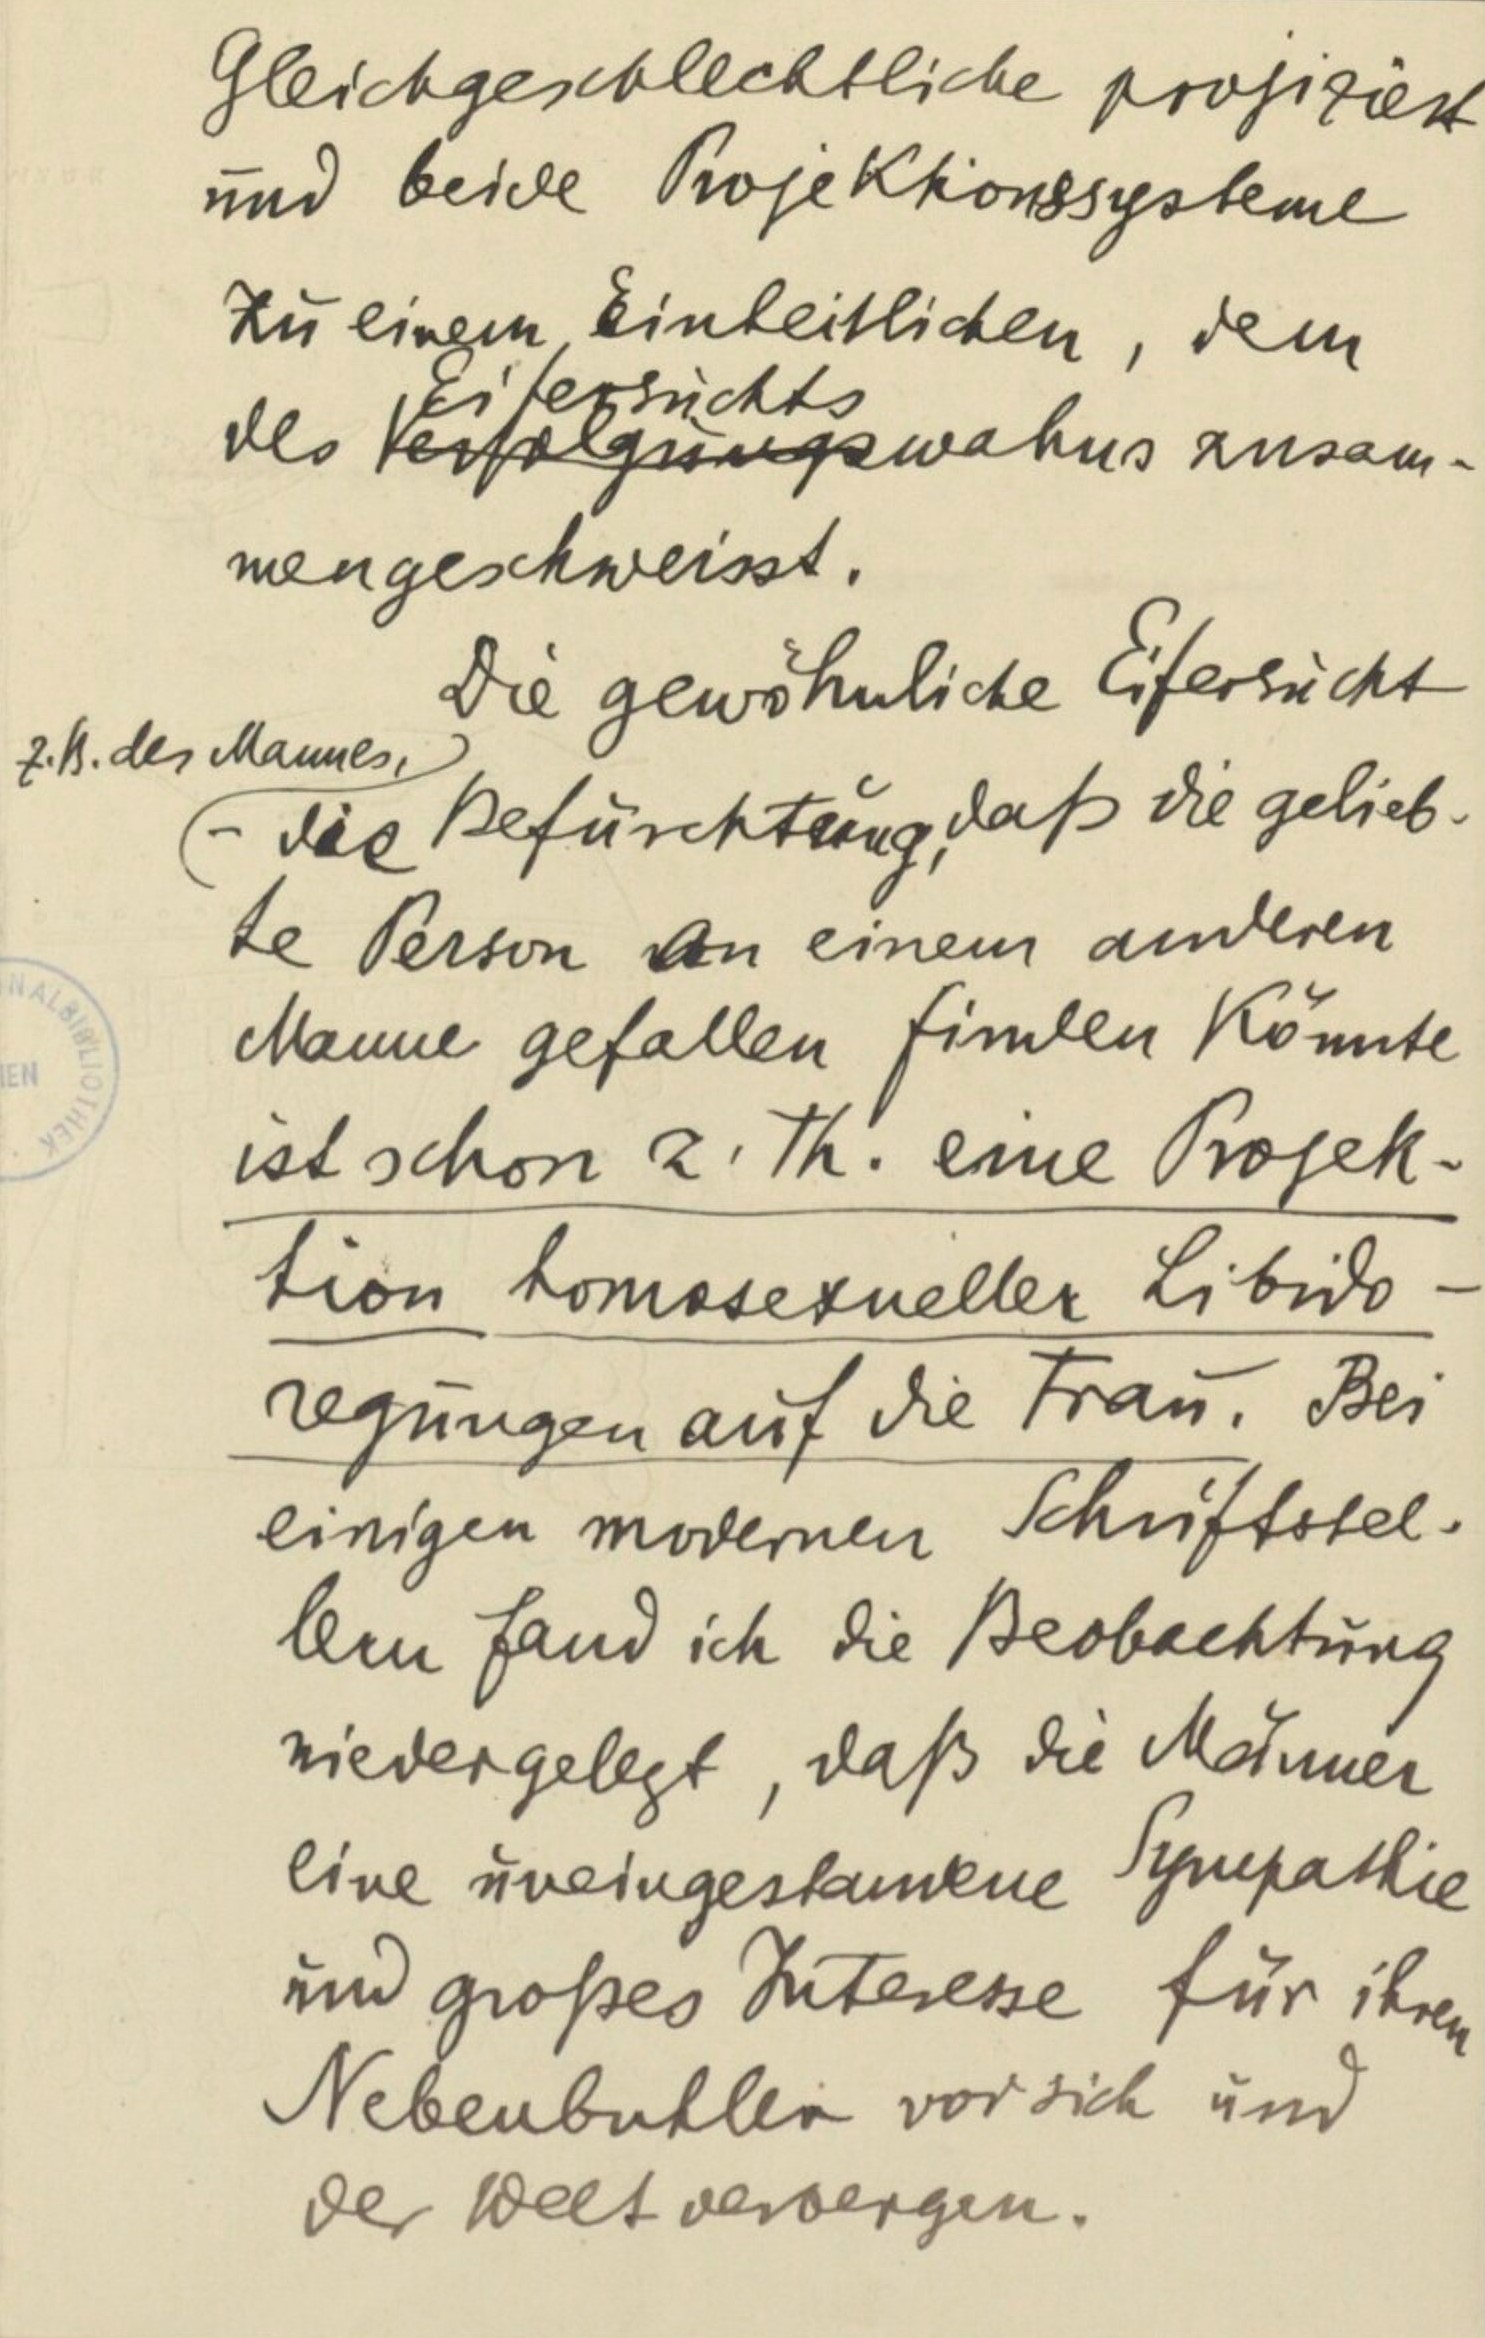 Gleichgeschlechtliche projiziert
und beide Projektionssysteme
zu einem Einheitlichen, dem
Eifersuchts
des Verfolgungswahns zusam-
mengeschweisst.
Die gewöhnliche Eifersucht
z.B. des Mannes,
- die Befürchtung, daß die gelieb-
te Person an einem anderen
Manne gefallen finden könnte
ist schon z. Th. eine Projek-
tion homosexueller Libido-
regungen auf die Frau. Bei
einigen modernen Schriftstel-
lern fand ich die Beobachtung
niedergelegt, daß die Männer
eine uneingestandene Sympathie
und großes Interesse für ihren
Nebenbuhler vor sich und
der Welt verbergen.
NALBIBLIOTHEK
IEN